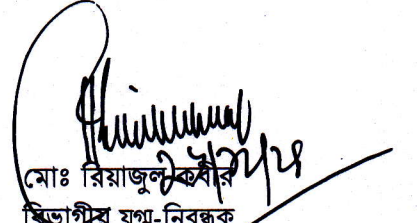 মোঃ রিয়াজুল কবীর
বিভাগীয় যুগ্ম-নিবন্ধক